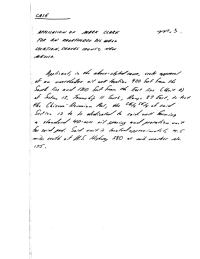 CASE
APPLICATION OF MARK CLARK
FOR AN UNORTHODOX OIL WELL
LOCATION, CHAVES COUNTY, NEW
MEXICO.
Applicant, in the above-styled cause, seeks approval
of an unorthodox oil well location 990 feet from the
South line and 1310 feet from the East line (Unit
of Section 12, Township South, Range 27 East, to test
the Pool, the of said
Section 12 to be dedicated to said well forming
a standard 40-acre oil spacing and proration unit
for said pool. Said unit is located approximately
miles south of U.S. Highway 380 at mile marker